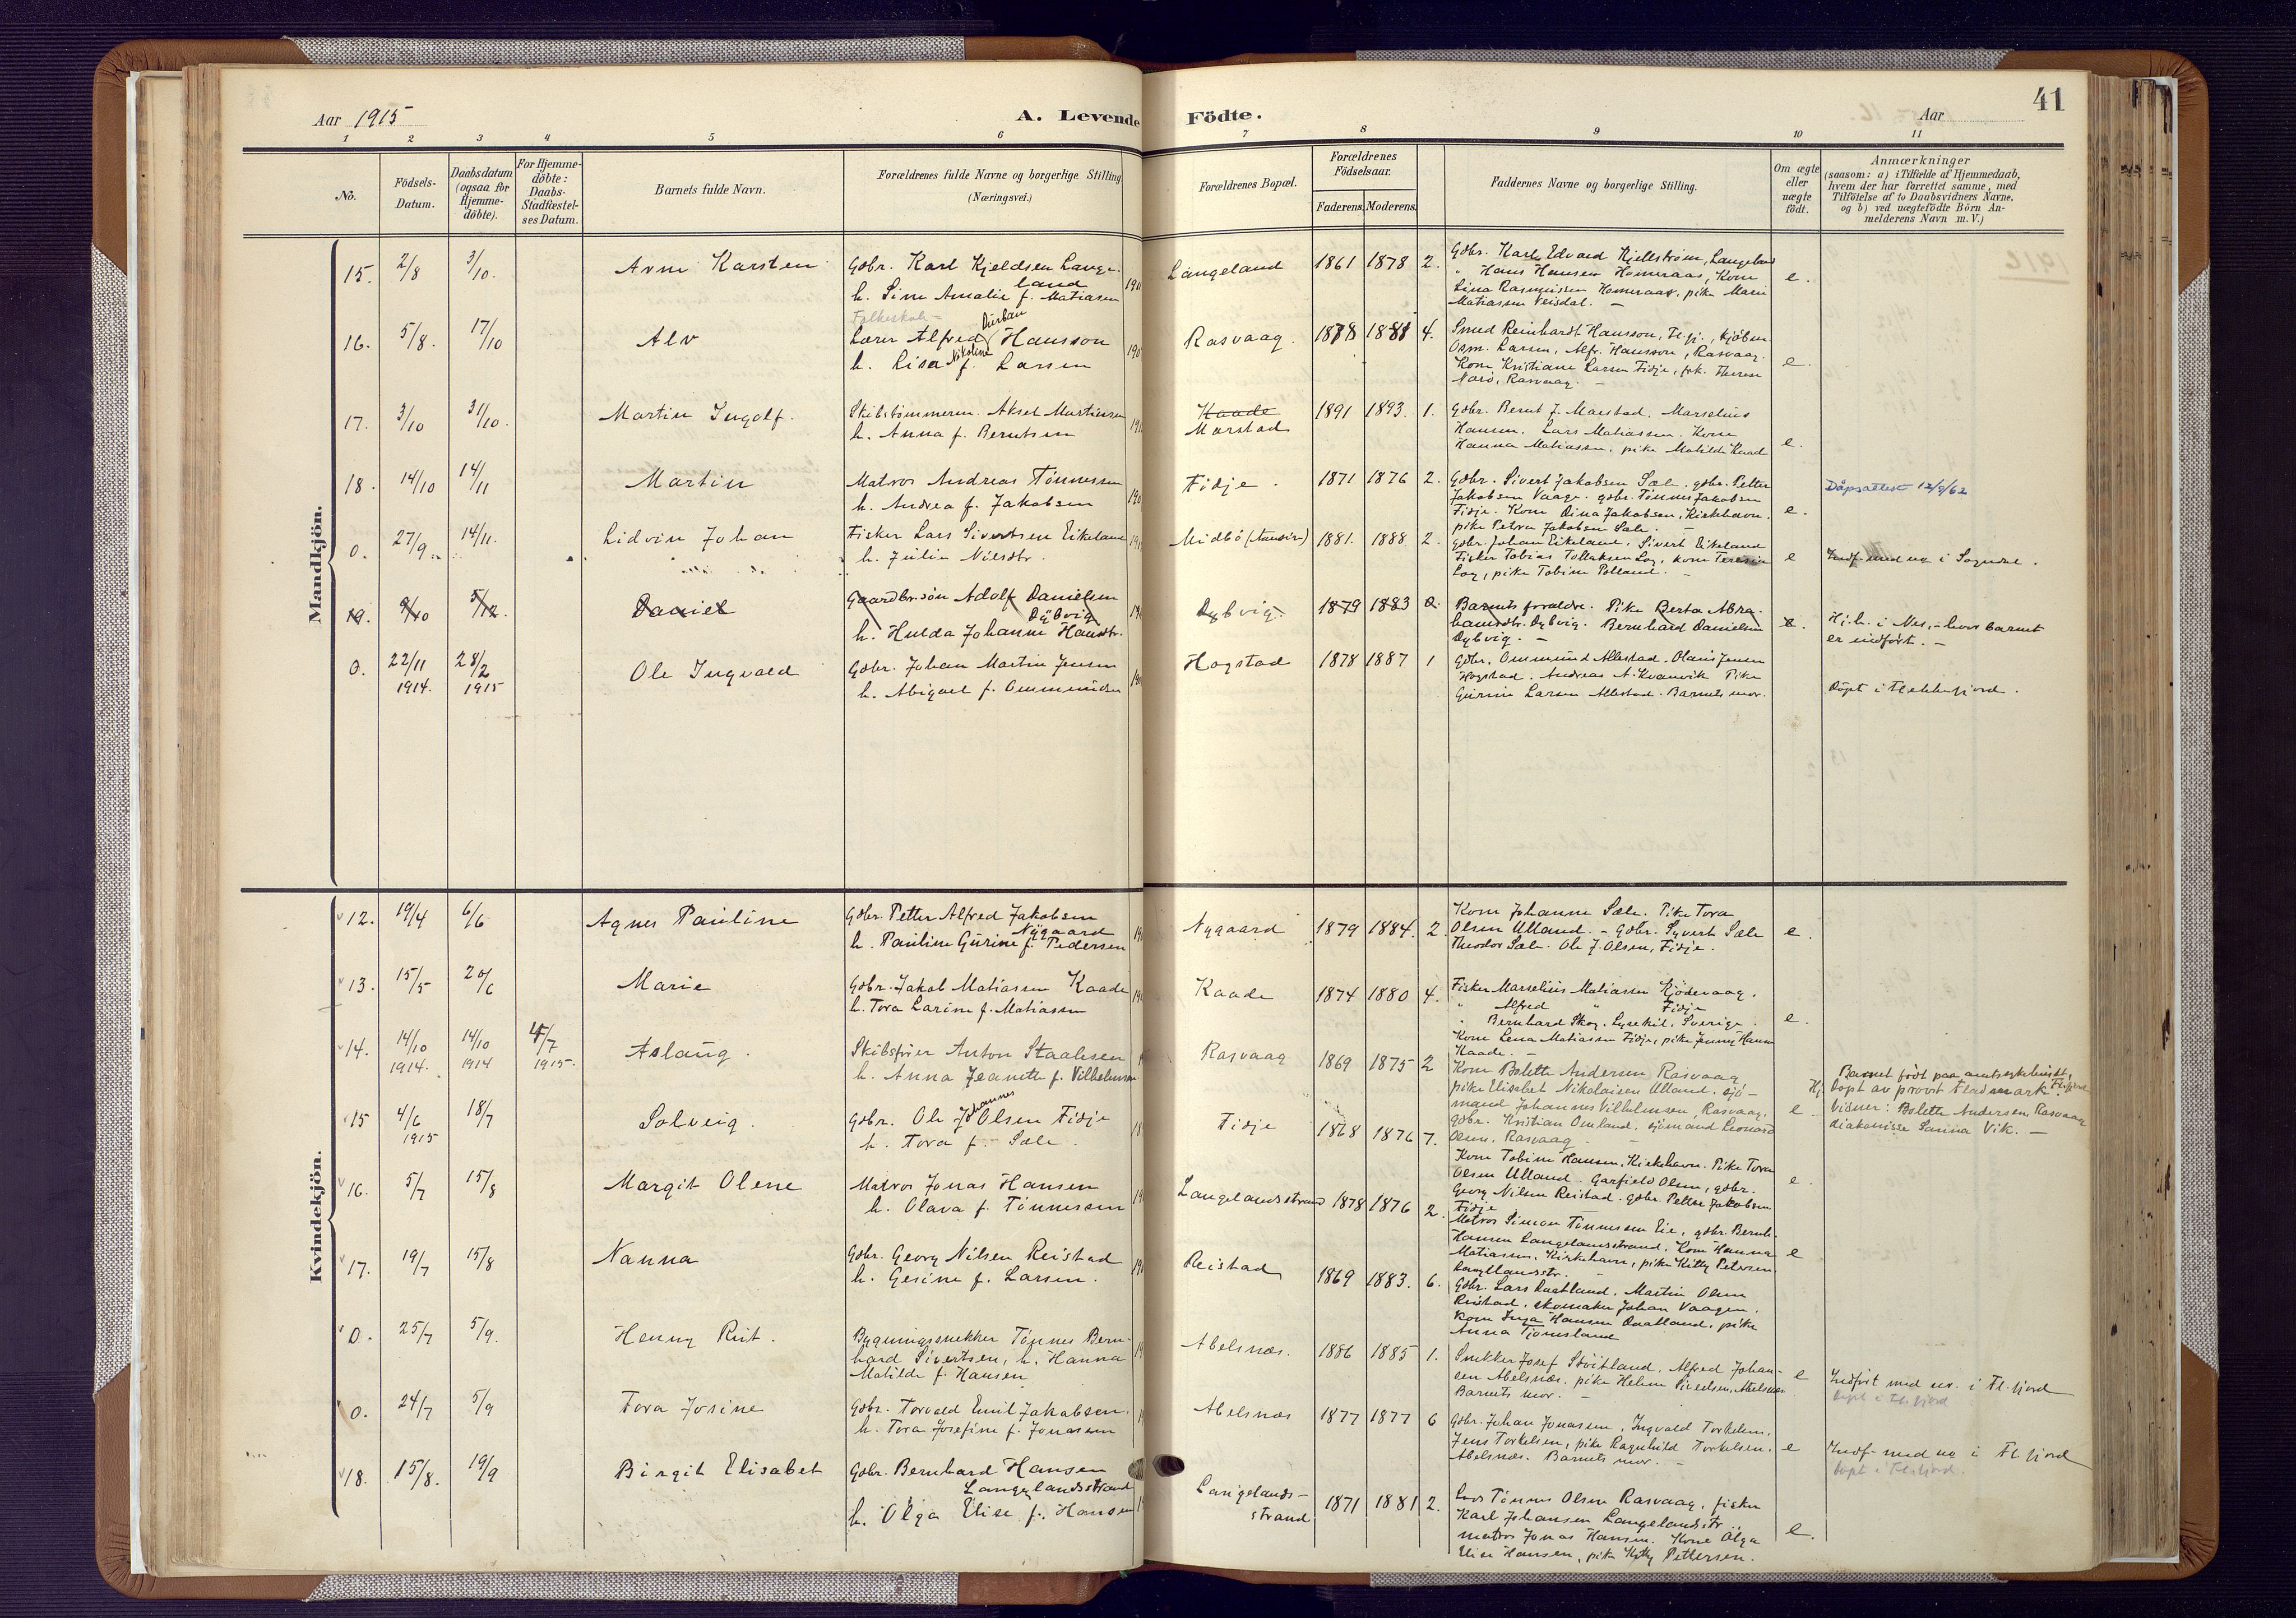 Aar 1915
A. Levende Födte.
Aar
41
1 2 3 4 5 6 7 8 9 10 11
No.
Födsels-Datum.
Daabsdatum (ogsaa for Hjemme-döbte).
For Hjemme-döbte: Daabs-Stadfæstel-ses Datum.
Barnets fulde Navn.
Forældrenes fulde Navne og borgerlige Stilling
(Næringsvei.)
Forældrenes Bopæl.
Forældrenes Födselsaar.
Faderens. Moderens.
Faddernes Navne og borgerlige Stilling.
Om ægte eller uægte födt.
Anmærkninger
(saasom: a) i Tilfælde af Hjemmedaab,
hvem der har forrettet samme, med
Tilföielse af to Daabsvidners Navne,
og b) ved uægtefödte Börn An-
melderens Navn m. V.)
Mandkjön.
15. 2/8 3/10. Arne Karsten
Gdbr. Karl Kjeldsen Lange-
land
h. Sine Amalie f. Matiasen
Langeland 1861 1878 2.
Gdbr. Karl Edvard Kjellström, Langeland
" Hans Hansen Homeraas, Kone
Lina Rasmussen Homeraas, pike Marie
Matiassen Veisdal. –
e.
16. 5/8. 17/10 Alv
Folkeskole-
Durban
Lærer Alfred Hansson
h. Lisa Nikoline f. Larsen
Rasvaag. 1878 1881 4.
Smed Reinhardt Hansson, Flfj., kjöbm.
Osm. Larsen, Alfr. Hansson, Rasvaag.
Kone Kristiane Larsen Fidje, frk. Therese
Rasvaag. –
e.
17. 3/10 31/10. Martin Ingolf.
Skibstömmerm. Aksel Martinsen
h. Anna f. Berntsen
Kaade
Marstad
1891 1893. 1.
Gdbr. Bernt J. Marstad. Marselius
Hansen. Lars Matiassen. Kone
Hanna Matiassen, pike Matilde Kaade
e.
18. 14/10 14/11 Martin
Matros Andreas Tönnessen
h. Andrea f. Jakobsen
Fidje. 1871 1876 2.
Gdbr. Sivert Jakobsen Sæle, gdbr. Petter
Jakobsen Vaage. gdbr. Tönnes Jakobsen
Fidje. Kone Dina Jakobsen, Kirkehavn.
pike Petra Jakobsen Sæle. –
e.
Dåpsattest 12/9/62
0. 27/9. 14/11. Lidvin Johan
Fisker Lars Sivertsen Eikeland
h. Julie Nilsdtr.
Midbö 1881. 1888 2.
Gdbr. Johan Eikeland, Sivert Eikeland
Fisker Tobias Tollaksen Log, kone Teresie
Log, pike Tobine Tolland. –
e
Indf. med no i Sogndal.
19. 9/10 5/12. Daniel
Gaardbr.sön Adolf Danielsen
Dybvig
h. Hulda Johanne Hansdtr.
Dybvig 1879 1883 2.
Barnets forældre. Pike Berta Abra-
hamsdtr. Dybvig. Bernhard Danielsen
Dybvig. –
e.
Hj.h. i Nes, – hvor barnet
er indfört. –
0. 22/11 1914. 28/2 1915 Ole Ingvald
Gdbr. Johan Martin Jensen
h. Abigael f. Ommundsen
Hogstad 1878 1887 1
Gdbr. Ommund Allestad. Olaus Jensen
Hogstad. Andreas A. Kvanvik. Pike
Gurine Larsen Allestad. Barnets mor.
Döpt i Flekkefjord.
Kvindekjön.
12. 19/4 6/6 Agnes Pauline
Gdbr. Petter Alfred Jakobsen
Nygaard
h. Pauline Gurine f. Pedersen
Nygaard 1879 1884. 2.
Kone Johanne Sæle. Pike Tora
Olsen Ulland. – Gdbr. Syvert Sæle
Theodor Sæle. Ole J. Olsen, Fidje.
e.
13. 15/5 20/6 Marie
Gdbr. Jakob Matiassen Kaade
h. Tora Larine f. Matiassen
Kaade 1874 1880 4.
Fisker Marselius Matiassen Kjödevaag.
" Alfred " Fidje
" Bernhard Skog, Lysekil, Sverige.
Kone Lena Matiassen Fidje, pike Jenny Hansen
Kaade. –
e.
14. 14/10 1914. 14/10 1914 4/7 1915. Aslaug.
Skibsförer Anton Staalesen
h. Anna Jeanette f. Vilhelmsen
Rasvaag 1869 1875 2
Kone Bolette Andersen Rasvaag
pike Elisabet Nikolaisen Ulland. sjö-
mand Johannes Vilhelmsen, Rasvaag,
gdbr. Kristian Omland, sjömand Leonard
Olsen, Rasvaag. –
e.
Barnet födt paa amtssykehuset,
Hj. Döpt av provst Fladmark Flfjord
Vidner: Bolette Andersen Rasvaag
diakonisse Sanna Vik. –
15 4/6 1915 18/7 Solveig.
Gdbr. Ole Johannes Olsen Fidje
h. Tora f. – Sæle.
Fidje 1868 1876 7.
Kone Tobine Hansen, Kirkehavn. Pike Tora
Olsen Ulland. Garfield Olsen, gdbr.
Georg Nilsen Reistad. gdbr. Petter Jakobsen
Fidje
e
16. 5/7 15/8 Margit Olene
Matros Jonas Hansen
h. Olava f. Tönnessen
Langelandsstrand 1878 1876 2.
Matros Simon Tönnessen Eie, gdbr. Bernh.
Hansen Langelandsstrand. Kone Hanna
Matiassen, Kirkehavn, pike Kitty Petersen
Langelandsstr. –
e
17. 19/7 15/8 Nanna
Gdbr. Georg Nilsen Reistad
h. Gesine f. Larsen.
Reistad 1869 1883. 6.
Gdbr. Lars Daatland. Martin Olsen
Reistad, skomaker Johan Vaagen.
Kone Inga Hansen Daatland, pike
Anna Tjomsland
0. 25/7 5/9. Henny Rut.
Bygningssnekker Tönnes Bern-
hard Sivertsen, h. Hanna
Matilde f. Hansen
Abelsnæs. 1886 1885 1.
Snekker Josef Stöitland. Alfred Johan-
sen Abelsnæs, pike Helene Sivertsen, Abelsnæs
Barnets mor. –
e
Indfört med nr. i Fl.fjord
döpt i Fl.fjord
0. 24/7 5/9 Tora Josine
Gdbr. Torvald Emil Jakobsen.
h. Tora Josefine f. Jonassen
Abelsnæs 1877 1877 6
Gdbr. Johan Jonassen, Ingvald Torkelsen,
Jens Torkelsen, pike Ragnhild Torkelsen.
Abelsnæs. Barnets mor. –
e
Indf. med no i Fl.fjord
döpt i Fl.fjord.
18. 15/8. 19/9 Birgit Elisabet
Gdbr. Bernhard Hansen
Langelandsstrand
h. Olga Elise f. Hansen
Langelands-
strand
1871 1881 2.
Lods Tönnes Olsen Rasvaag, fisker
Karl Johansen Langelandsstr.
matros Jonas Hansen. Kone Olga
Elise Hansen, pike Kitty Pettersen.
e.